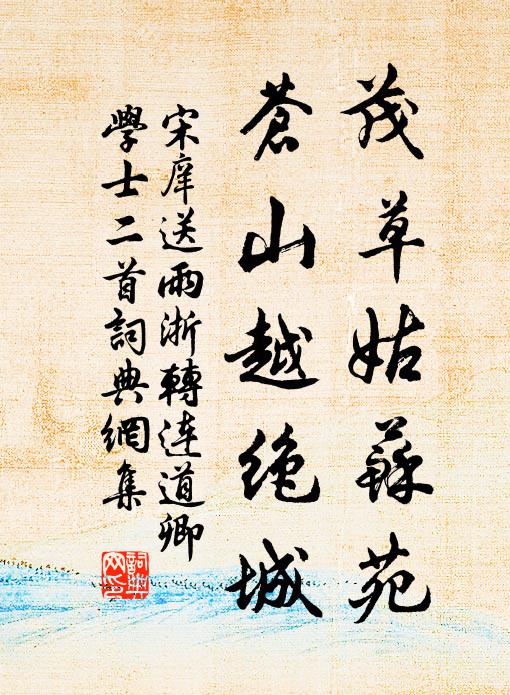 茂草姑蘇苑
蒼山越絶城
宋庠送兩浙轉運道卿
學士二首詞典網集